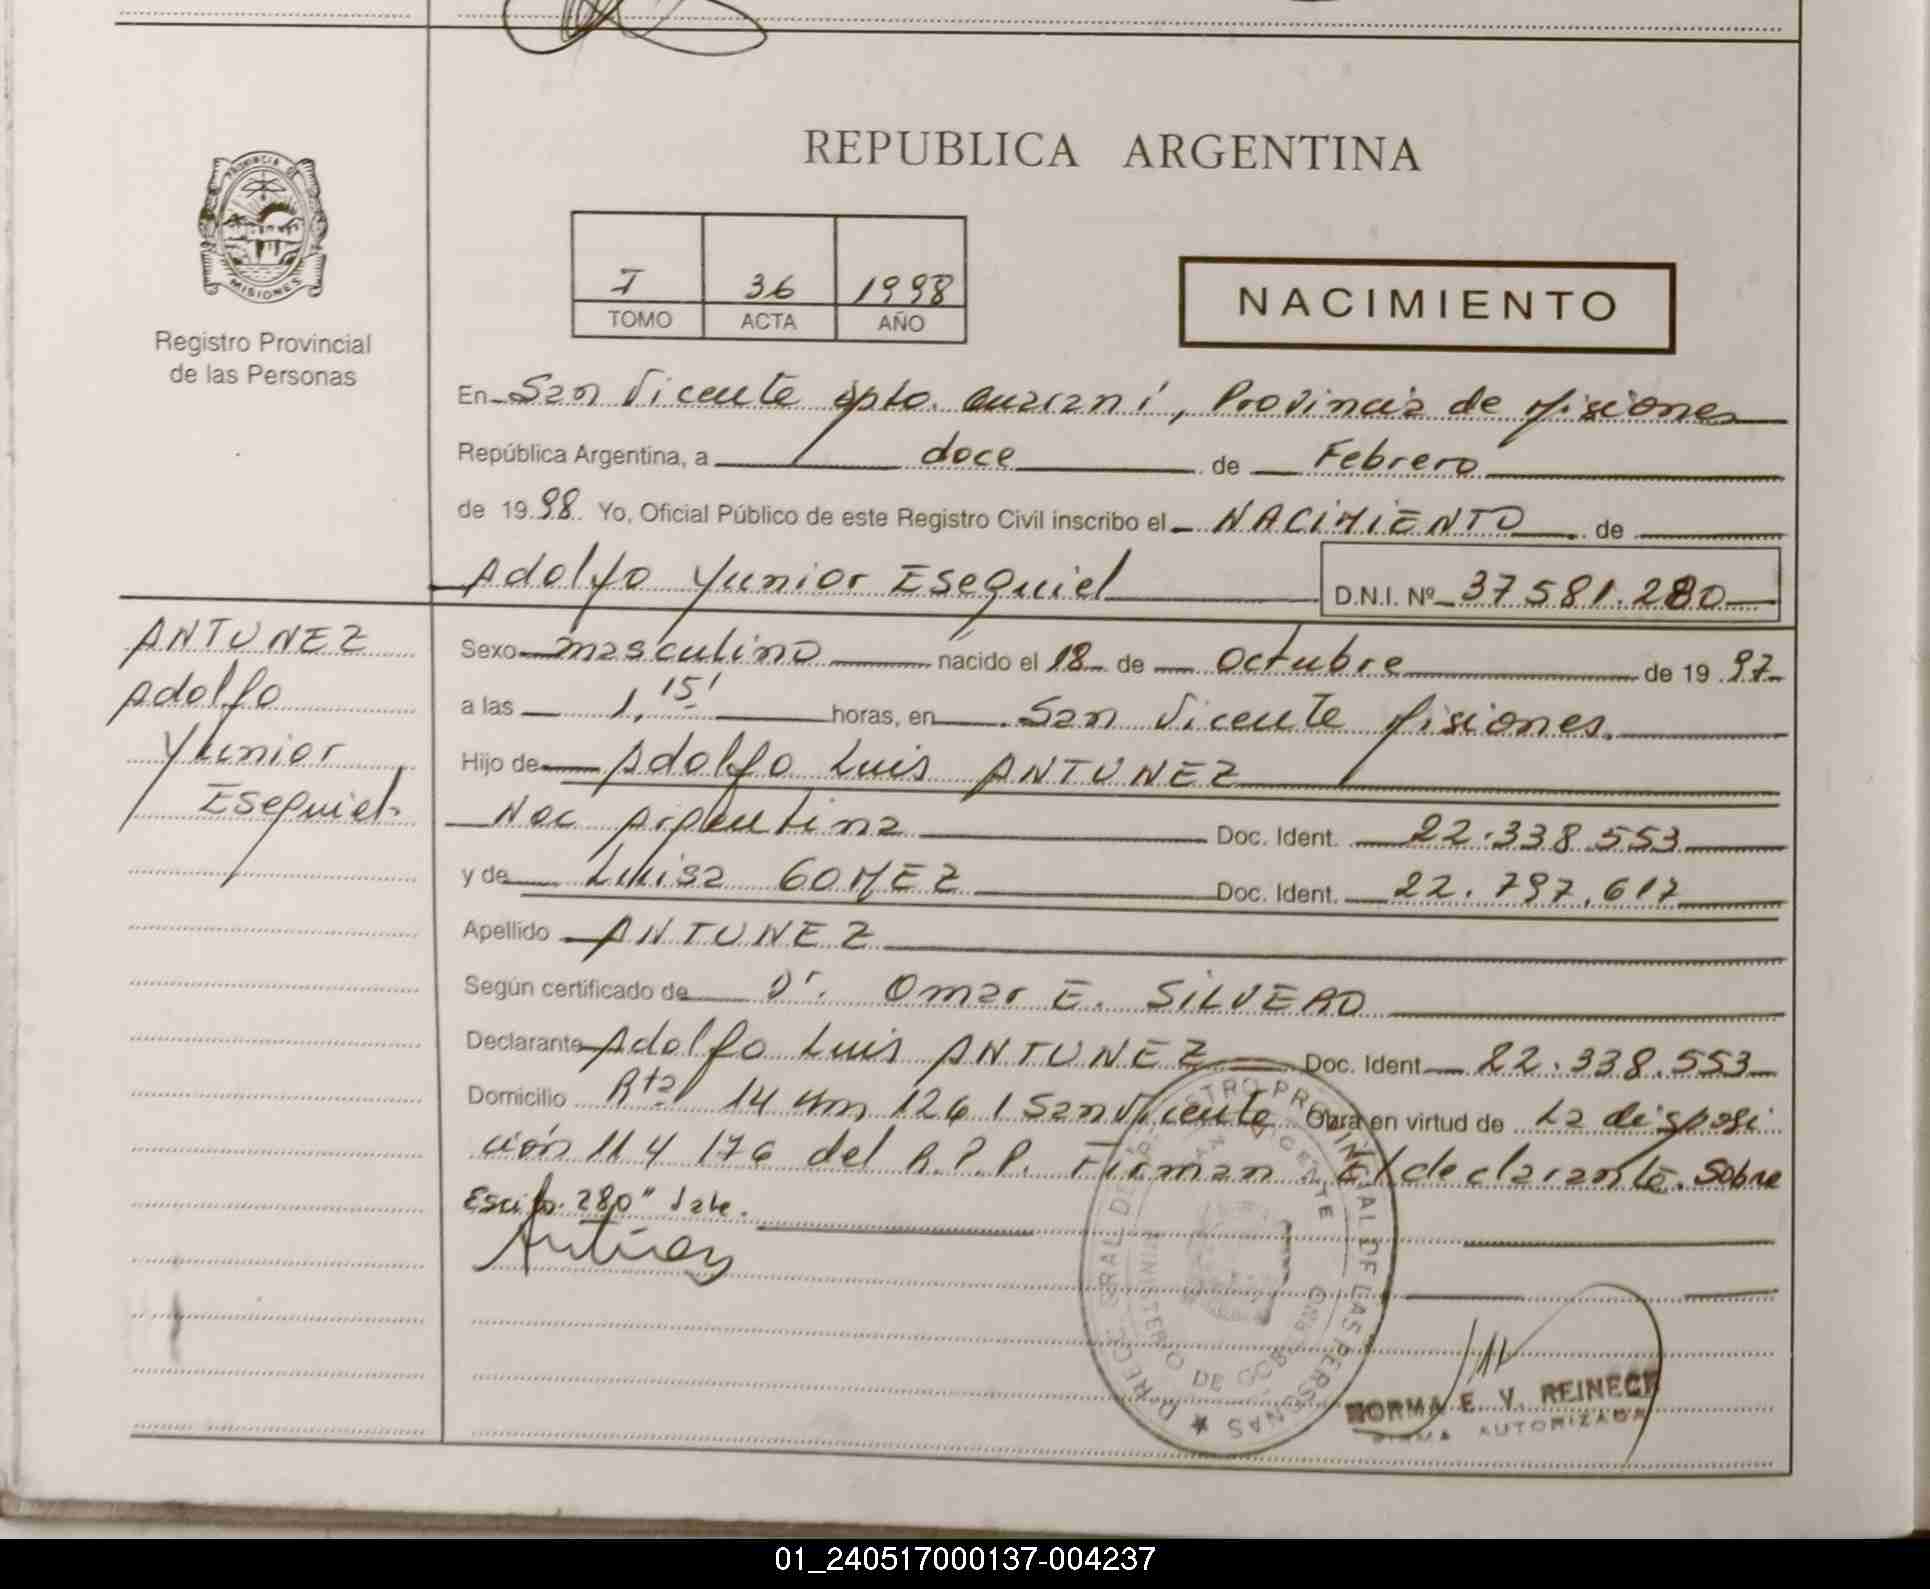 REPUBLICA ARGENTINA
PROVINCIA DE
MISIONES
Registro Provincial
de las Personas
I 36 1998
TOMO ACTA AÑO
NACIMIENTO
En San Vicente dpto. Guaraní, Provincia de Misiones
República Argentina, a doce de Febrero
de 1998. Yo, Oficial Público de este Registro Civil inscribo el NACIMIENTO de
Adolfo Yunior Esequiel D.N.I. Nº 37581.280
ANTUNEZ
Adolfo
Yunior
Esequiel
Sexo masculino nacido el 18 de octubre de 1997
a las 1,15' horas, en San Vicente Misiones.
Hijo de Adolfo Luis ANTUNEZ
Nac Argentina Doc. Ident. 22.338.553
y de Luisa GOMEZ Doc. Ident. 22.797.617
Apellido ANTUNEZ
Según certificado de Dr. Omar E. SILVERO
Declarante Adolfo Luis ANTUNEZ Doc. Ident 22.338.553
Domicilio Rta 14 Km 126 / San Vicente Obra en virtud de La disposi
ción 114/76 del R.P.P. Firman El declarante. Sobre
Escrito. 280" Vale.
Antunez
REGISTRO PROVINCIAL DE LAS PERSONAS
SAN VICENTE
MINISTERIO DE GOBIERNO
NORMA E. V. REINECK
FIRMA AUTORIZADA
01_240517000137-004237